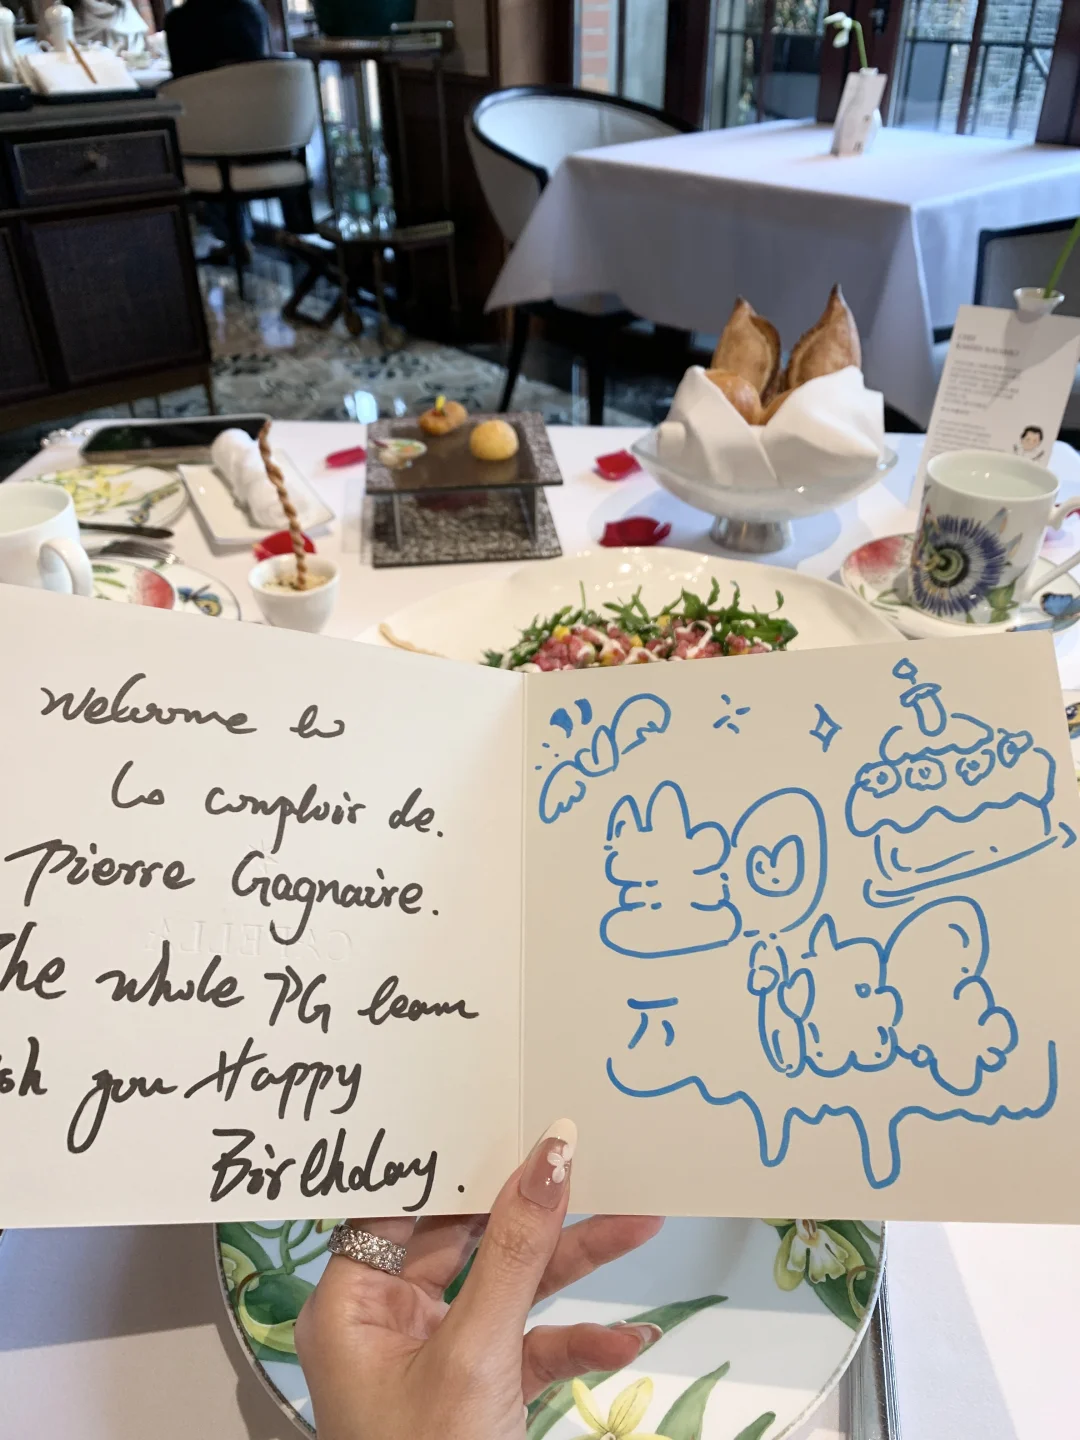 Welcome to
Le comptoir de.
Pierre Gagnaire.
The whole PG team
sh you Happy
Birthday.
CAPELLA